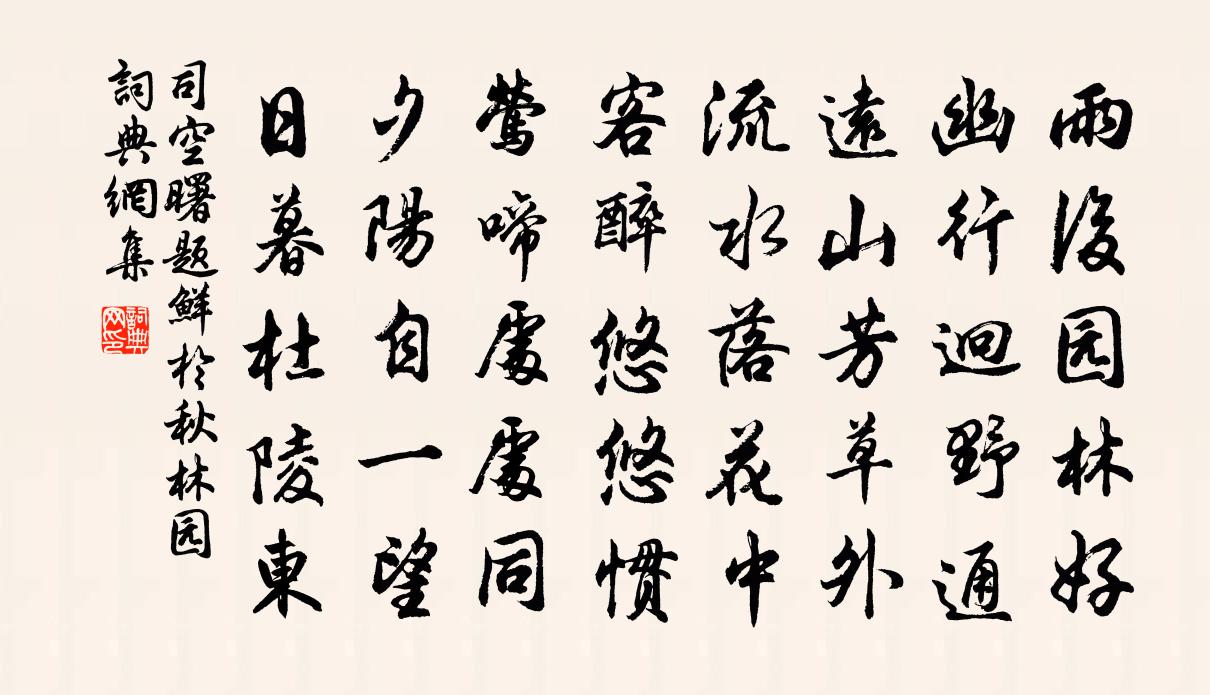 雨後园林好
幽行迥野通
遠山芳草外
流水落花中
客醉悠悠慣
鶯啼處處同
夕陽自一望
日暮杜陵東
司空曙題鮮於秋林园
詞典網集
詞典网印